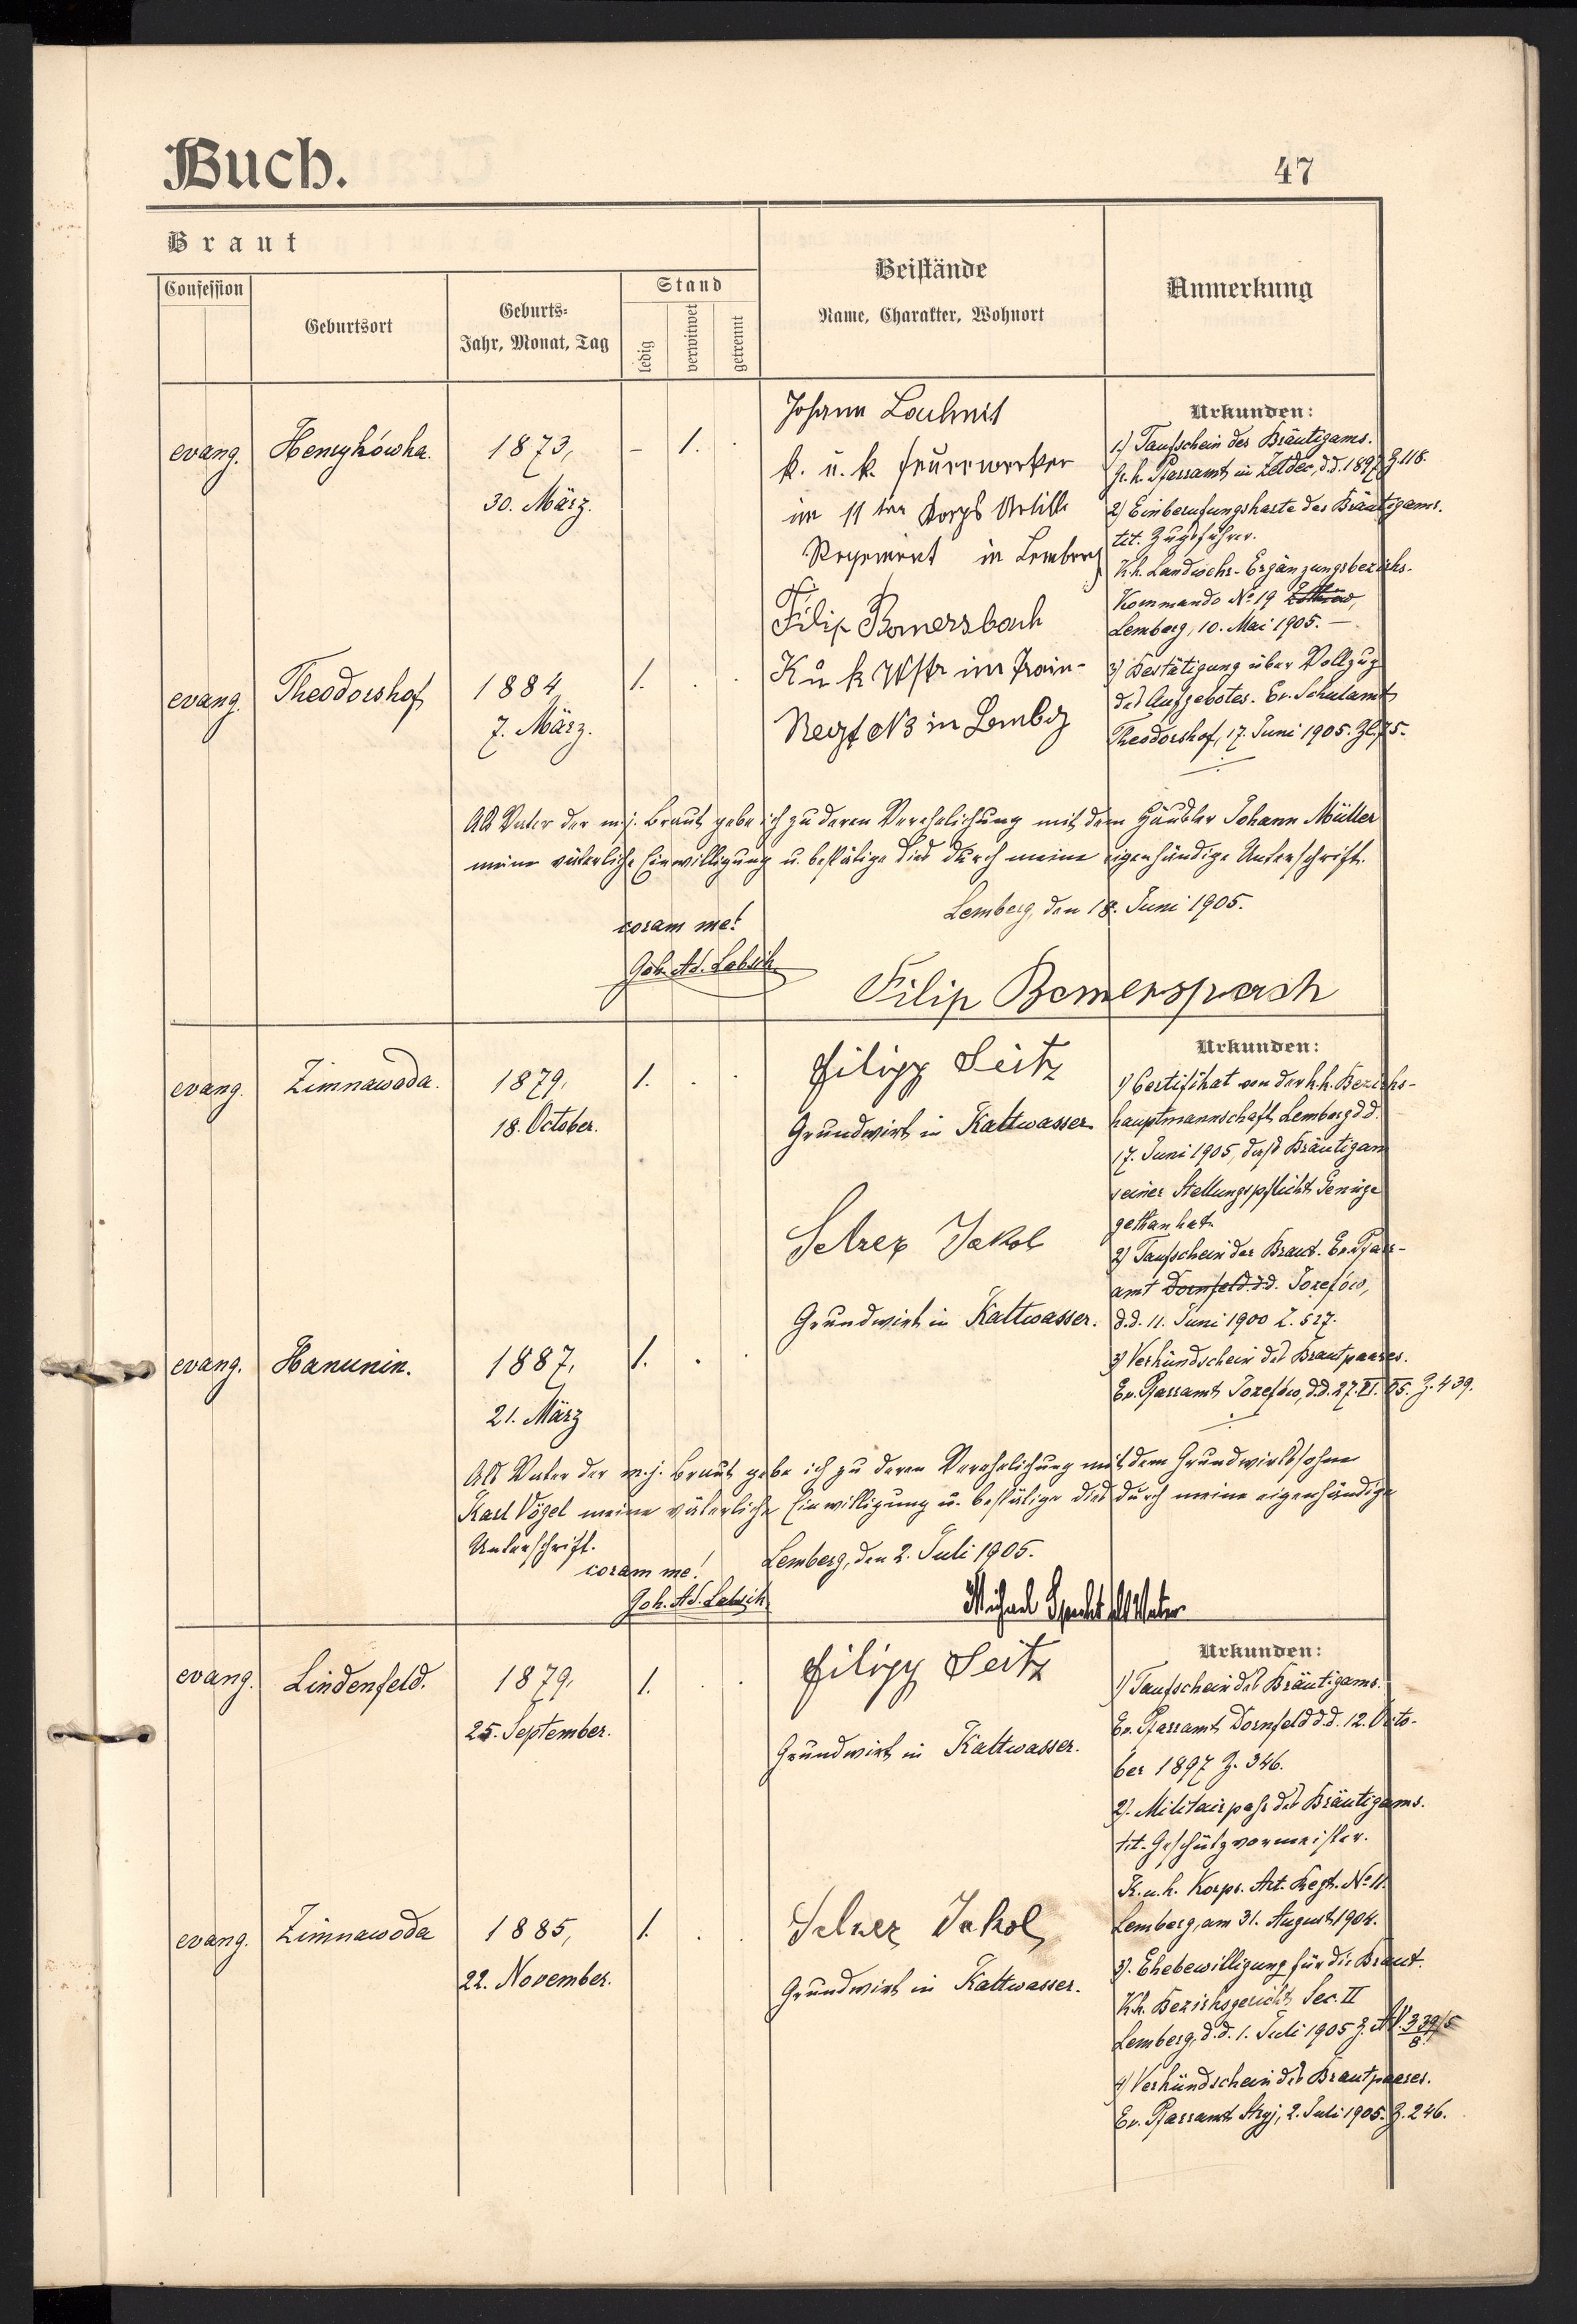 Buch.
47
Braut
Confession
Geburtsort
Geburts-
Jahr, Monat, Tag
Stand
ledig
verwitwet
getrennt
Beistände
Name, Charakter, Wohnort
Anmerkung
evang. Henrykówka. 1873, – 1. .
30. März.
Johann Lachnit
k. u. k. Feuerwerker
im 11ten Korps Artill
Regiment in Lemberg
Filip Bomersbach
K u k Wftr im Train-
Regt N 3 in Lembg
Urkunden:
1.) Taufschein des Bräutigams.
Gr. k. Pfarramt in d.d. 1897 Z. 118.
2) Einberufungskarte des Bräutigams.
tit. Zugsführer.
K.k. Landwehr-Ergänzungsbezirks-
Kommando No 19
Lemberg, 10. Mai 1905. —
3) Bestätigung über Vollzug
des Aufgebotes. Ev. Schulamt
Theodorshof, 17. Juni 1905. Zl. 75.
evang. Theodorshof 1884 1. . .
7. März.
Als Vater der mj. Braut gebe ich zu deren Verehelichung mit dem Häusler Johann Müller
meine väterliche Einwilligung u. bestätige dies durch meine eigenhändige Unterschrift.
Lemberg, den 18. Juni 1905.
coram me!
Joh. Ad. Labsik
Filip Bomerspach
evang. Zimnawoda. 1879, 1. . .
18. October.
Filipp Seitz
Grundwirt in Kaltwasser.
Selzer Jakob
Grundwirt in Kaltwasser.
Urkunden:
1) Certifikat von der k.k. Bezirks-
hauptmannschaft Lemberg d.d.
17. Juni 1905, dass Bräutigam
seiner Stellungspflicht Genüge
gethan hat.
2) Taufschein der Braut. Ev. Pfarr-
amt Dornfeld d.d. Jozefów,
d.d. 11. Juni 1900 Z. 527.
3) Verkündschein des Brautpaares.
Ev. Pfarramt Jozefów, d.d. 27. VI. 05. Z. 439.
evang. Hanunin. 1887, 1. . .
21. März
Als Vater der m.j. Braut gebe ich zu deren Verehelichung mit dem Grundwirtssohne
Karl Vögel meine väterliche Einwilligung u. bestätige dies durch meine eigenhändige
Unterschrift.
coram me! Lemberg, den 2. Juli 1905.
Joh. Ad. Labsik
Michael Specht als Vater
evang. Lindenfeld. 1879, 1. . .
25. September.
Filipp Seitz
Grundwirt in Kaltwasser.
Urkunden:
1) Taufschein des Bräutigams.
Ev. Pfarramt Dornfeld d.d. 12. Octo-
ber 1897 Z. 346.
2). Militairpass des Bräutigams.
tit. Geschützvormeister.
K. u. k. Korps. Art. Regt. No 11.
Lemberg, am 31. August 1904.
3). Ehebewilligung für die Braut.
K.k. Bezirksgericht Sec. II
Lemberg, d.d. 1. Juli 1905
4) Verkündschein des Brautpaares.
Ev. Pfarramt Stryj, 2. Juli 1905. Z. 246.
evang. Zimnawoda 1885, 1. . .
22. November.
Selzer Jakob
Grundwirt in Kaltwasser.